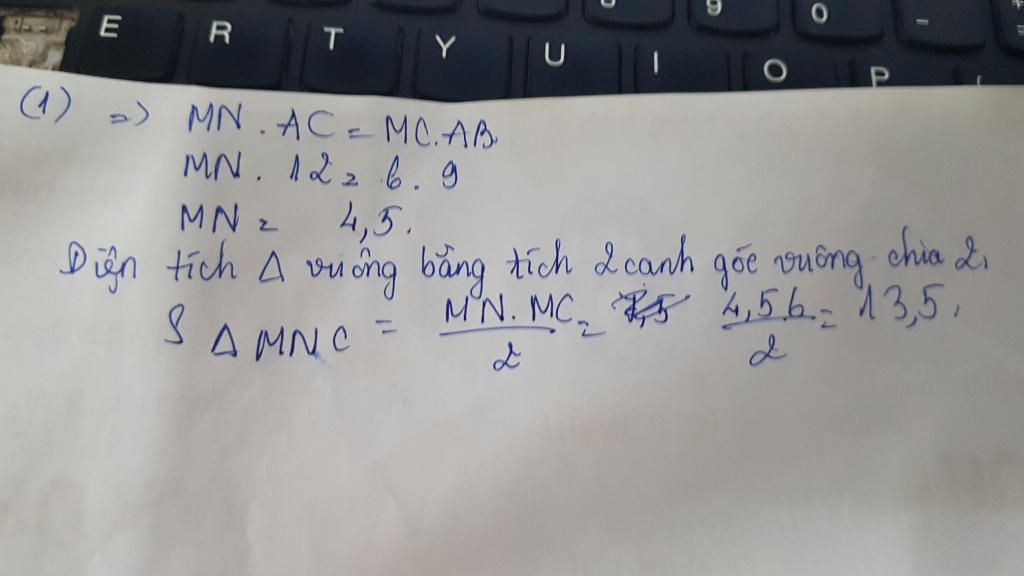 E R T Y U I O P
9 0 -
(1) => MN . AC = MC.AB.
MN . 12 = 6 . 9
MN = 4,5.
Diện tích Δ vuông bằng tích 2 canh góc vuông chia 2.
S Δ MNC = MN.MC / 2 = 4,5.6 / 2 = 13,5.